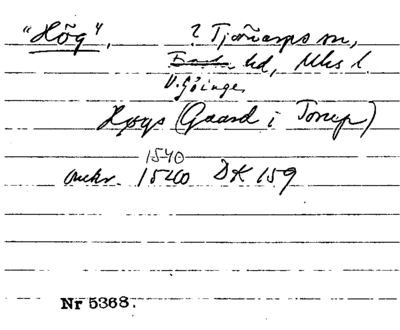 "Hög", ? Tjörnarps sn,
hd, Mhs l.
V. Göinge
Høgs (Gaard i Torup)
1540
omkr. 1540 DK 159
Nr 5368.